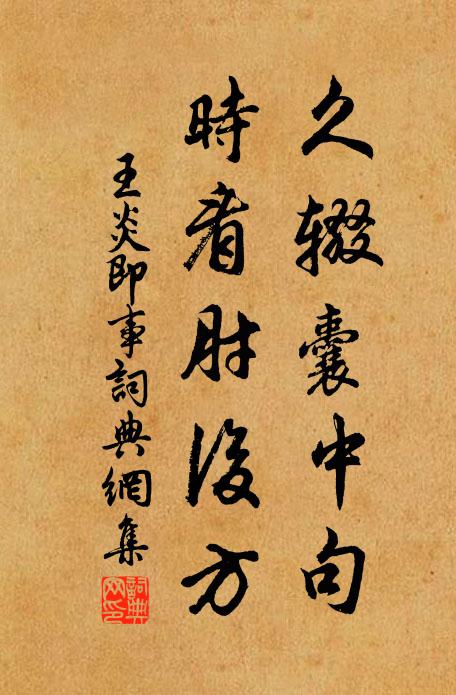 久辍囊中句
時看肘後方
王炎即事詞典網集
詞典網印